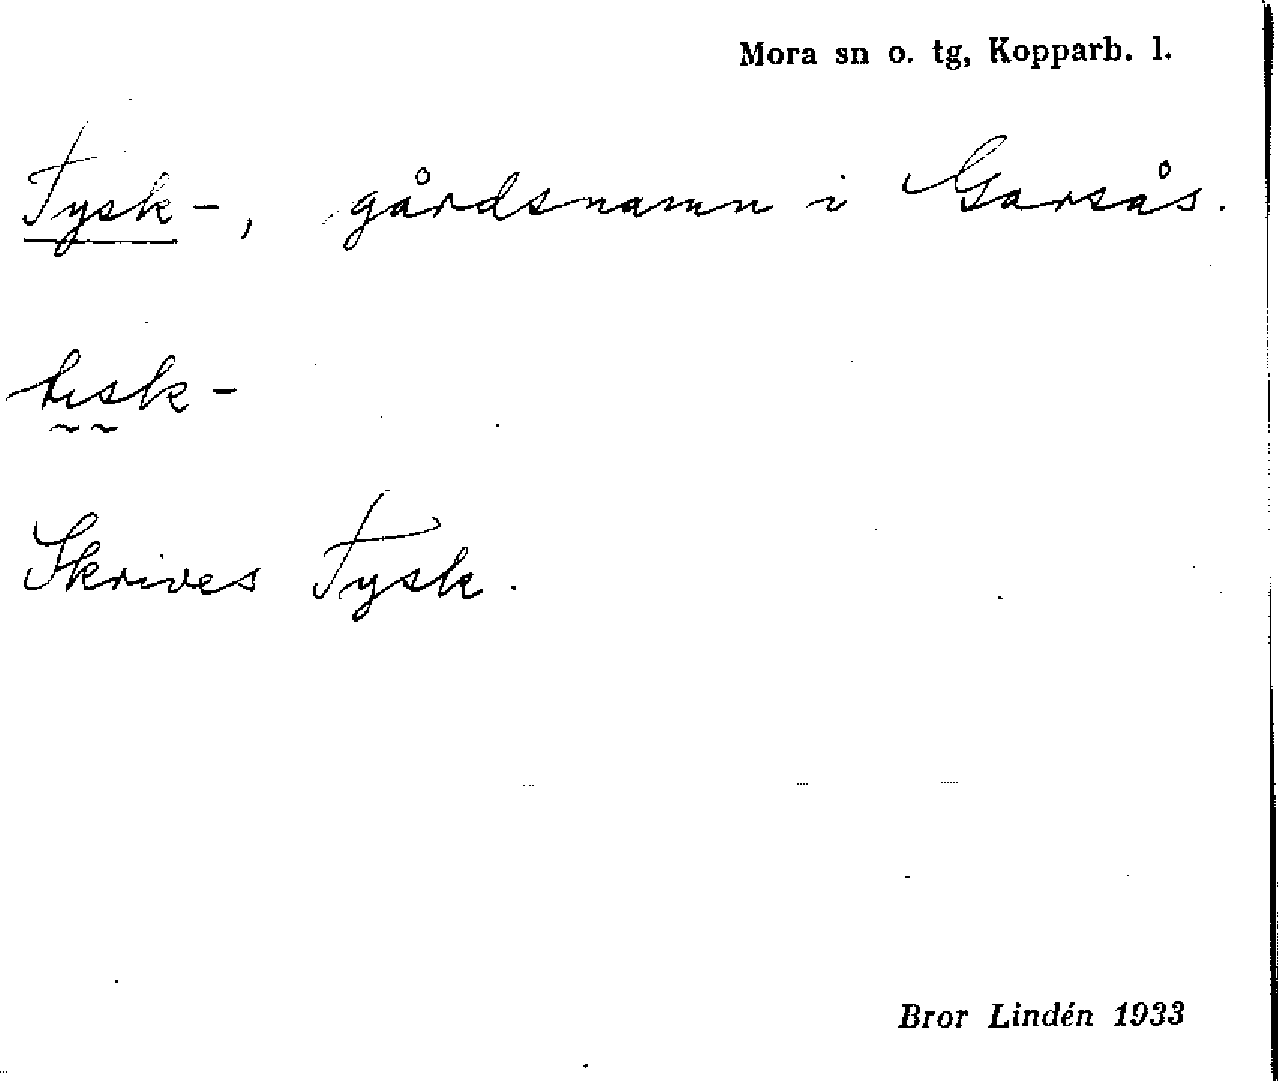 Mora sn o. tg, Kopparb. l.
Tysk-, gårdsnamn i Garsås.
tısk-
Skrives Tysk.
Bror Lindén 1933